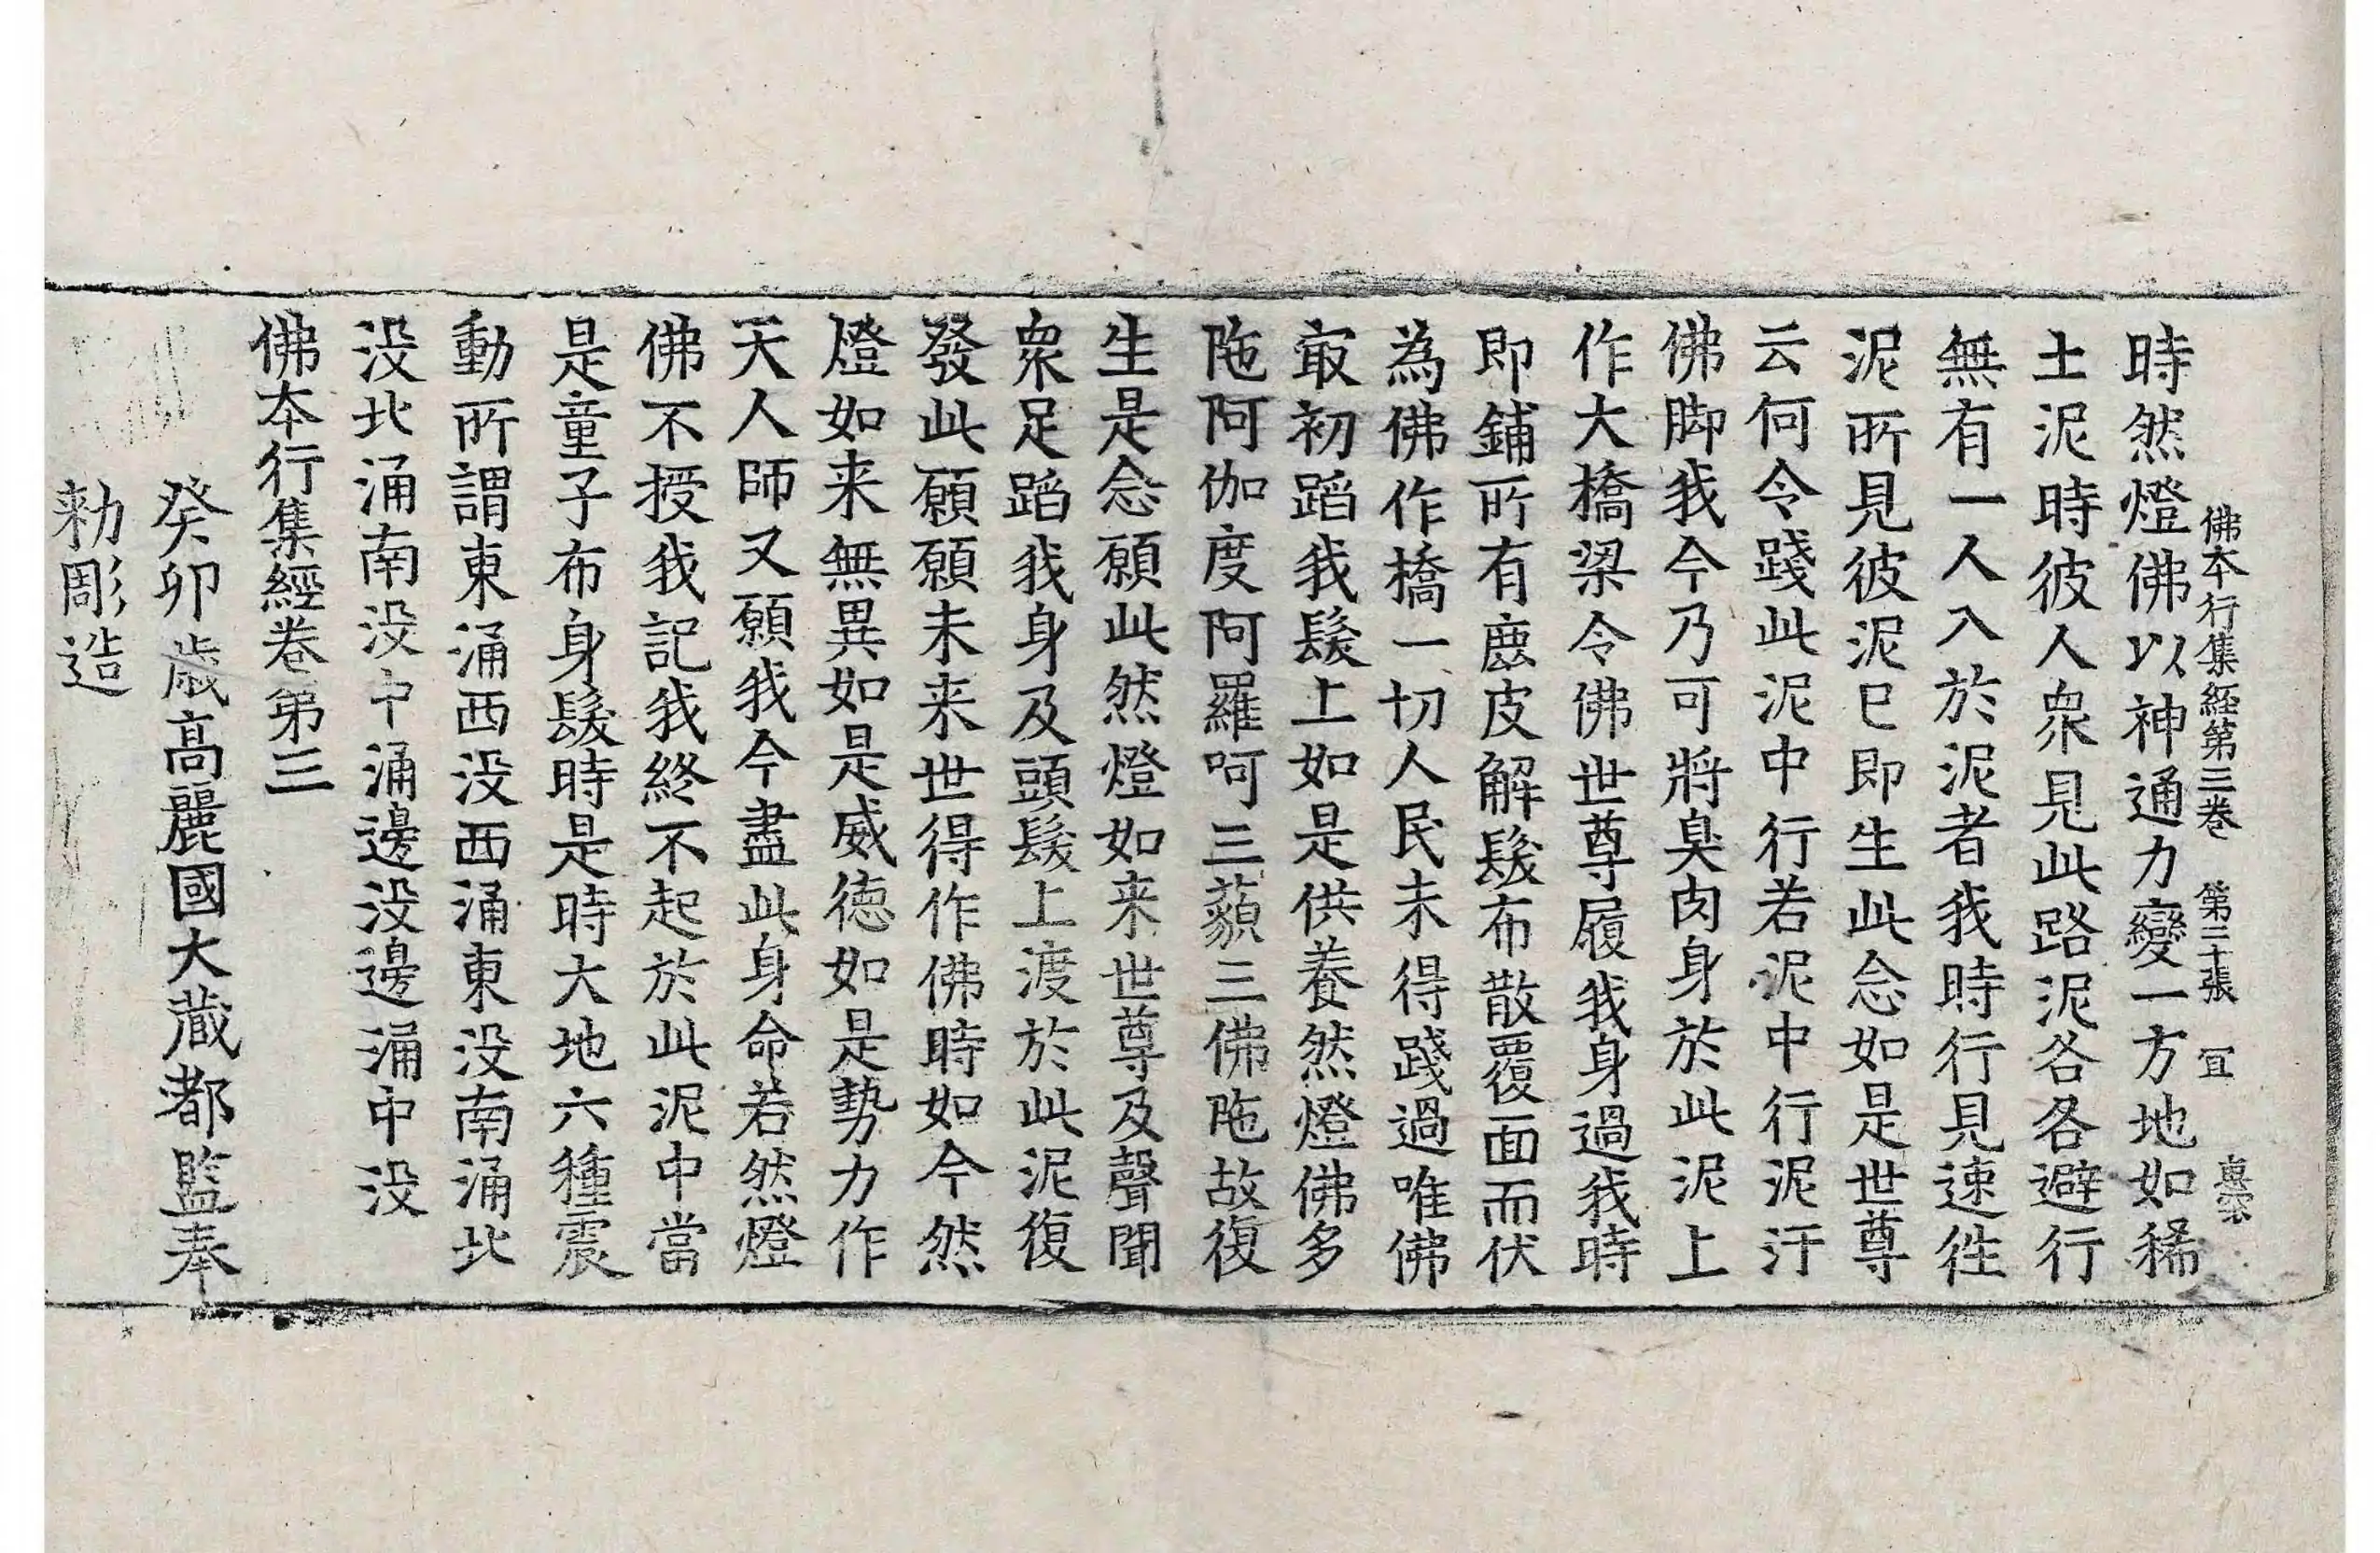 佛本行集經第三卷 第二十張 冝
時然燈佛以神通力變一方地如稀
土泥時彼人衆見此路泥各各避行
無有一人入於泥者我時行見速徃
泥所見彼泥已即生此念如是世尊
云何令踐此泥中行若泥中行泥汙
佛脚我今乃可將臭肉身於此泥上
作大橋梁令佛世尊履我身過我時
即鋪所有鹿皮解髮布散覆面而伏
為佛作橋一切人民未得踐過唯佛
㝡初蹈我髮上如是供養然燈佛多
陁阿伽度阿羅呵三藐三佛陁故復
生是念願此然燈如来世尊及聲聞
衆足蹈我身及頭髮上渡於此泥復
發此願願未来世得作佛時如今然
燈如来無異如是威德如是勢力作
天人師又願我今盡此身命若然燈
佛不授我記我終不起於此泥中當
是童子布身髮時是時大地六種震
動所謂東涌西没西涌東没南涌北
没北涌南没中涌邊没邊涌中没
佛本行集經卷第三
癸卯歳高麗國大藏都監奉
勑彫造